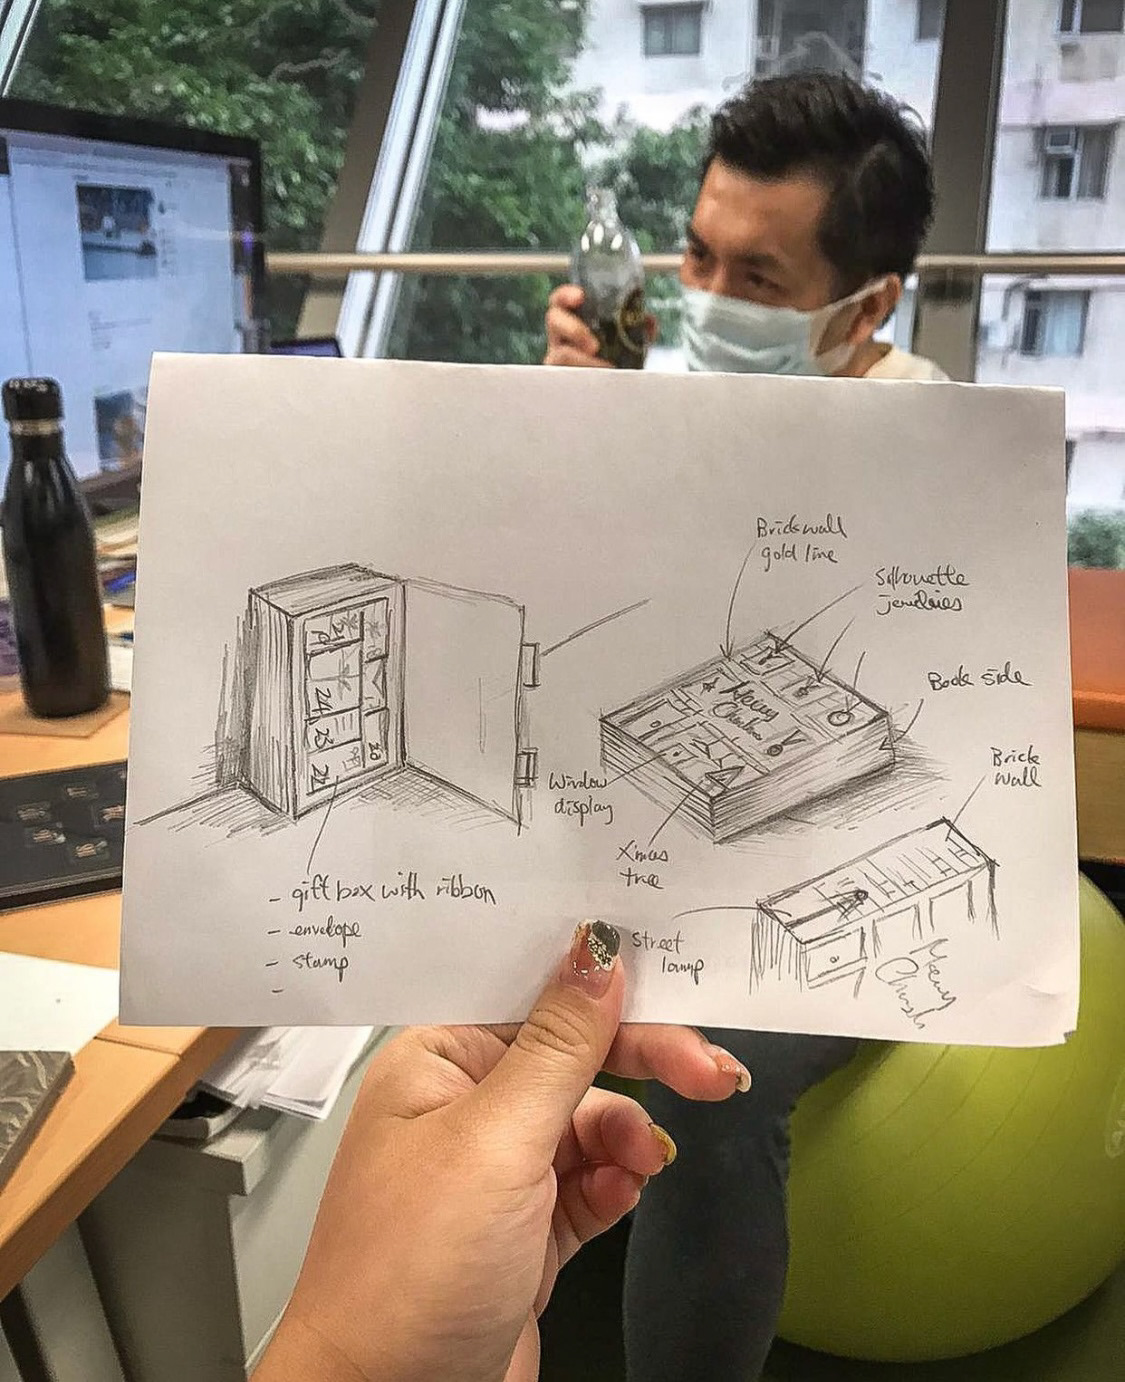 Brickwall
gold line
Silhouette
jewelries
Book side
Brick
wall
Window
display
Xmas
tree
Merry
- gift box with ribbon
- envelope
- stamp
-
street
lamp
Merry
24
23
21
20